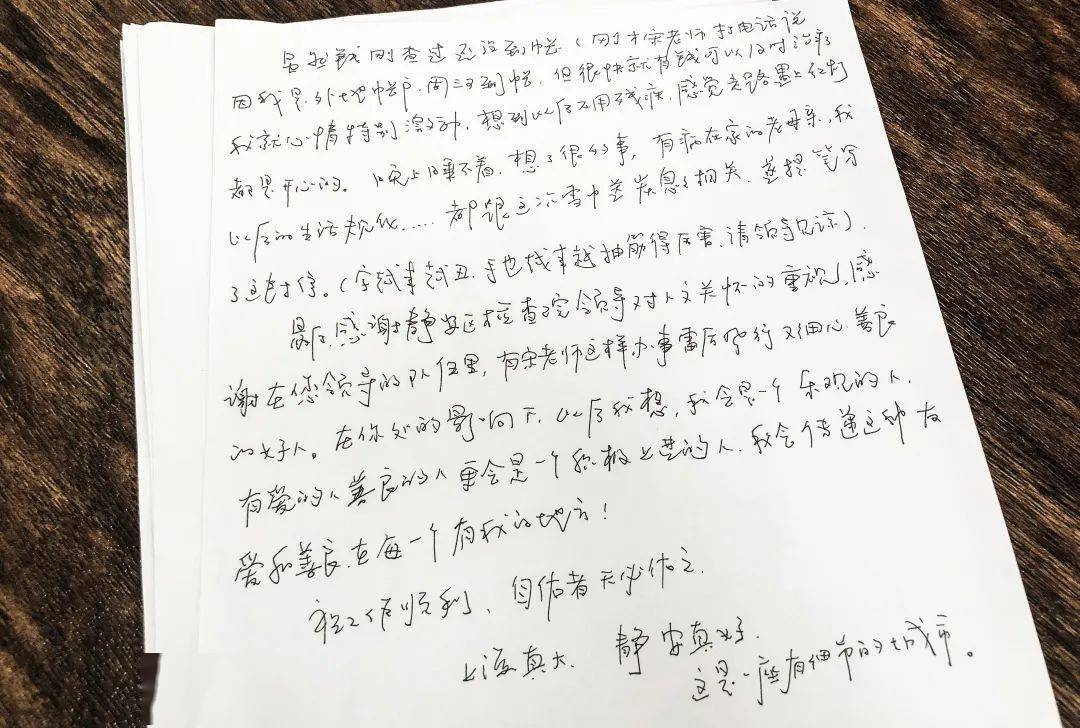 虽然钱刚查过还没到帐（刚才宋老师打电话说
因我是外地帐户.周三到帐.但很快就有钱可以及时治疗
我就心情特别激动，想到以后不用残疾.感觉走路遇上红灯
都是开心的。晚上睡不着.想了很多事，有病在家的老母亲，我
以后的生活规优……都跟这次雪中送炭息息相关.遂提笔写
了这封信。（字越来越丑.手也越来越抽筋得厉害.请领导见谅）.
最后.感谢静安区检查院领导对人文关怀的重视，感
谢在您领导的队伍里，有宋老师这样办事雷厉风行又细心.善良
的好人。在你处的影响下.以后我想，我会是一个乐观的人.
有爱的人善良的人更会是一个积极上进的人.我会传递这种友
爱和善良.在每一个有我的地方！
祝工作顺利、自佑者天必佑之.
上海真大.静安真好.
这是一座有细节的大城市。